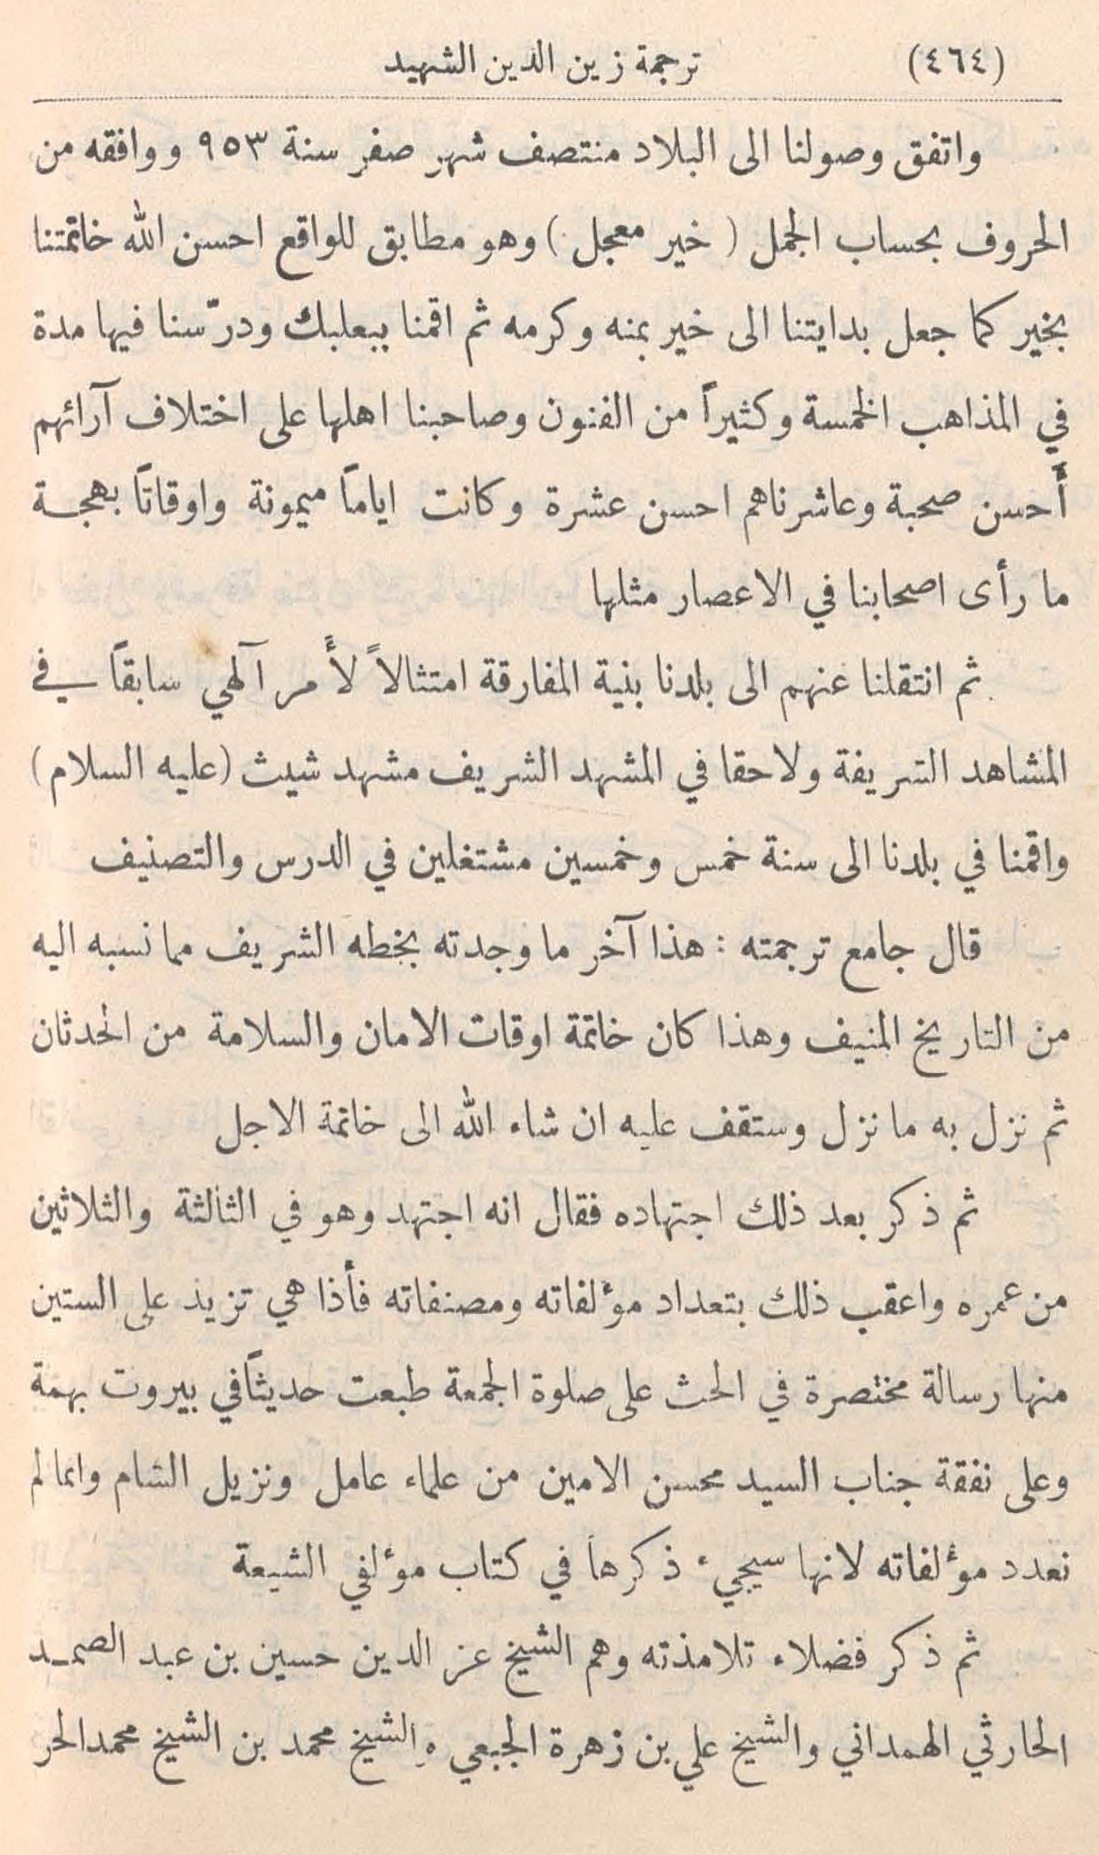 (٤٦٤) ترجمة زين الدين الشهيد
واتفق وصولنا الى البلاد منتصف شهر صفر سنة ٩٥٣ ووافقه من
الحروف بحساب الجمل ( خير معجل ) وهو مطابق للواقع احسن الله خاتمتنا
بخير كما جعل بدايتنا الى خير بمنه وكرمه ثم اقمنا ببعلبك ودرّسنا فيها مدة
في المذاهب الخمسة وكثيراً من الفنون وصاحبنا اهلها على اختلاف آرائهم
أَحسن صحبة وعاشرناهم احسن عشرة وكانت اياماً ميمونة واوقاتاً بهجة
ما رأى اصحابنا في الاعصار مثلها
ثم انتقلنا عنهم الى بلدنا بنية المفارقة امتثالاً لأَمر آلهي سابقاً في
المشاهد الشريفة ولاحقا في المشهد الشريف مشهد شيث (عليه السلام)
واقمنا في بلدنا الى سنة خمس وخمسين مشتغلين في الدرس والتصنيف
قال جامع ترجمته : هذا آخر ما وجدته بخطه الشريف مما نسبه اليه
من التاريخ المنيف وهذا كان خاتمة اوقات الامان والسلامة من الحدثان
ثم نزل به ما نزل وستقف عليه ان شاء الله الى خاتمة الاجل
ثم ذكر بعد ذلك اجتهاده فقال انه اجتهد وهو في الثالثة والثلاثين
من عمره واعقب ذلك بتعداد مؤلفاته ومصنفاته فأذا هي تزيد على الستين
منها رسالة مختصرة في الحث على صلوة الجمعة طبعت حديثاً في بيروت بهمة
وعلى نفقة جناب السيد محسن الامين من علماء عامل ونزيل الشام وانما لم
نعدد مؤلفاته لانها سيجيء ذكرها في كتاب مؤلفي الشيعة
ثم ذكر فضلاء تلامذته وهم الشيخ عز الدين حسين بن عبد الصمد
الحارثي الهمداني والشيخ علي بن زهرة الجبعي والشيخ محمد بن الشيخ محمد الحر